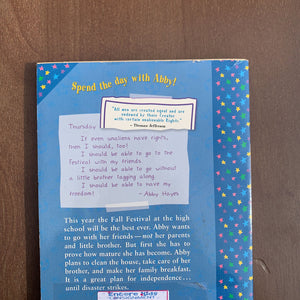 Spend the day with Abby!
"All men are created equal and are
endowed by their Creator
with certain unalienable Rights."
- Thomas Jefferson
Thursday
If even unaliens have rights,
then I should, too!
I should be able to go to the
festival with my friends.
I should be able to go without
a little brother tagging along.
I should be able to have my
freedom!
- Abby Hayes
This year the Fall Festival at the high
school will be the best ever. Abby wants
to go with her friends—not her parents
and little brother. But first she has to
prove how mature she has become. Abby
plans to clean the house, take care of her
brother, and make her family breakfast.
It is a great plan for independence...
until disaster strikes.
Encore Kids
CONSIGNMENT